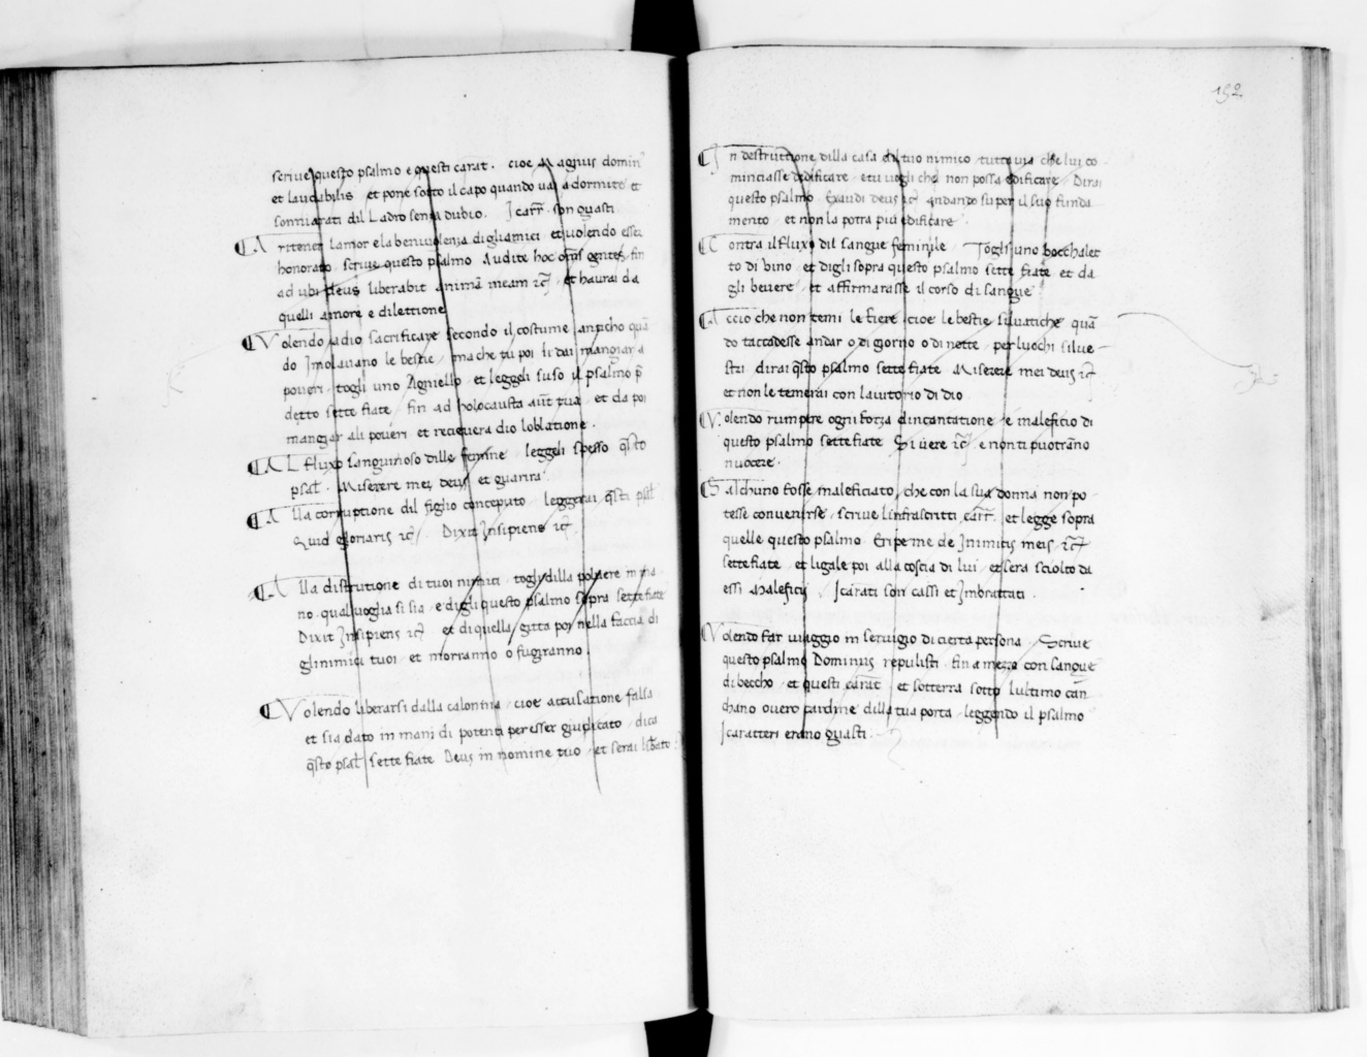 scrive questo psalmo e questi carat. cioe Magnus domin̄
et laudabilis et pone sotto il capo quando vai a dormire et
sonniarati dil Ladro senza dubio. I carr̄. son guasti
¶A ritener lamor e la benivolenza di gliamici et volendo esser
honorato scrive questo psalmo Audite hoc om̄s gentes, fin
ad ubi deus liberabit animā meam ⁊c̄ et haurai da
quelli amore e dilettione
¶Volendo adio sacrificare secondo il costume anticho quā
do Imolavano le bestie, ma che tu poi li dai mangiar a
poveri togli uno Agniello et leggeli suso il psalmo p̄
detto sette fiate fin ad holocausta aūt tua et da poi
mangiar ali poveri et recievera dio loblatione.
¶AL fluxo sanguinoso dille femine leggeli spesso q̄sto
psal̄. Miserere mei deus et guarira
¶Alla corruptione dil figlio conceputo leggerai q̄sti psal̄
Quid gloriaris ⁊c̄ Dixit Insipiens ⁊c̄
¶Alla distrutione di tuoi nimici togli dilla polvere in ma
no. qual voglia si sia e digli questo psalmo sopra sette fiate
Dixit Insipiens ⁊c̄ et di quella gitta poi nella faccia di
gl inimici tuoi et morranno o fugiranno.
¶Volendo liberarsi dalla calonnia cioe accusatione falsa
et sia dato in mani di potenti per esser giudicato dica
q̄sto psal̄ sette fiate Deus in nomine tuo et serai lib̄ato
192
¶In destruttione dilla casa dil tuo nimico tuttavia che lui co
minciasse dedificare e tu vogli che non possa edificare Dirai
questo psalmo Exaudi deus ⁊c̄ andando su per il suo funda
mento et non la potra piu edificare.
¶Contra il fluxo dil sangue feminile Togli uno bocchalet
to di vino et digli sopra questo psalmo sette fiate et da
gli bevere et affirmarasse il corso di sangue
¶Accio che non temi le fiere cioe le bestie silvatiche quā
do taccadesse andar o di giorno o di notte per luochi silve-
stri dirai q̄sto psalmo sette fiate Miserere mei deus ⁊c̄
et non le temerai con laiutorio di dio
¶Volendo rumpere ogni forza dincantatione e maleficio di
questo psalmo sette fiate Si vere ⁊c̄ e non ti puotrāno
nuocere.
¶S alchuno fosse maleficiato, che con la sua donna non po-
tesse convenirse scrive linfrascritti carr̄. et legge sopra
quelle questo psalmo Eripe me de Inimicis meis ⁊c̄
sette fiate et ligale poi alla coscia di lui et sera sciolto da
essi Maleficij. I carati son cassi et Imbrattati.
¶Volendo far viaggio in servigio di cierta persona Scrive
questo psalmo Dominus repulisti fin a mezzo con sangue
di beccho et questi carat̄ et sotterra sotto lultimo can̄
chano overo cardine dilla tua porta leggendo il psalmo
I caratteri erano guasti.